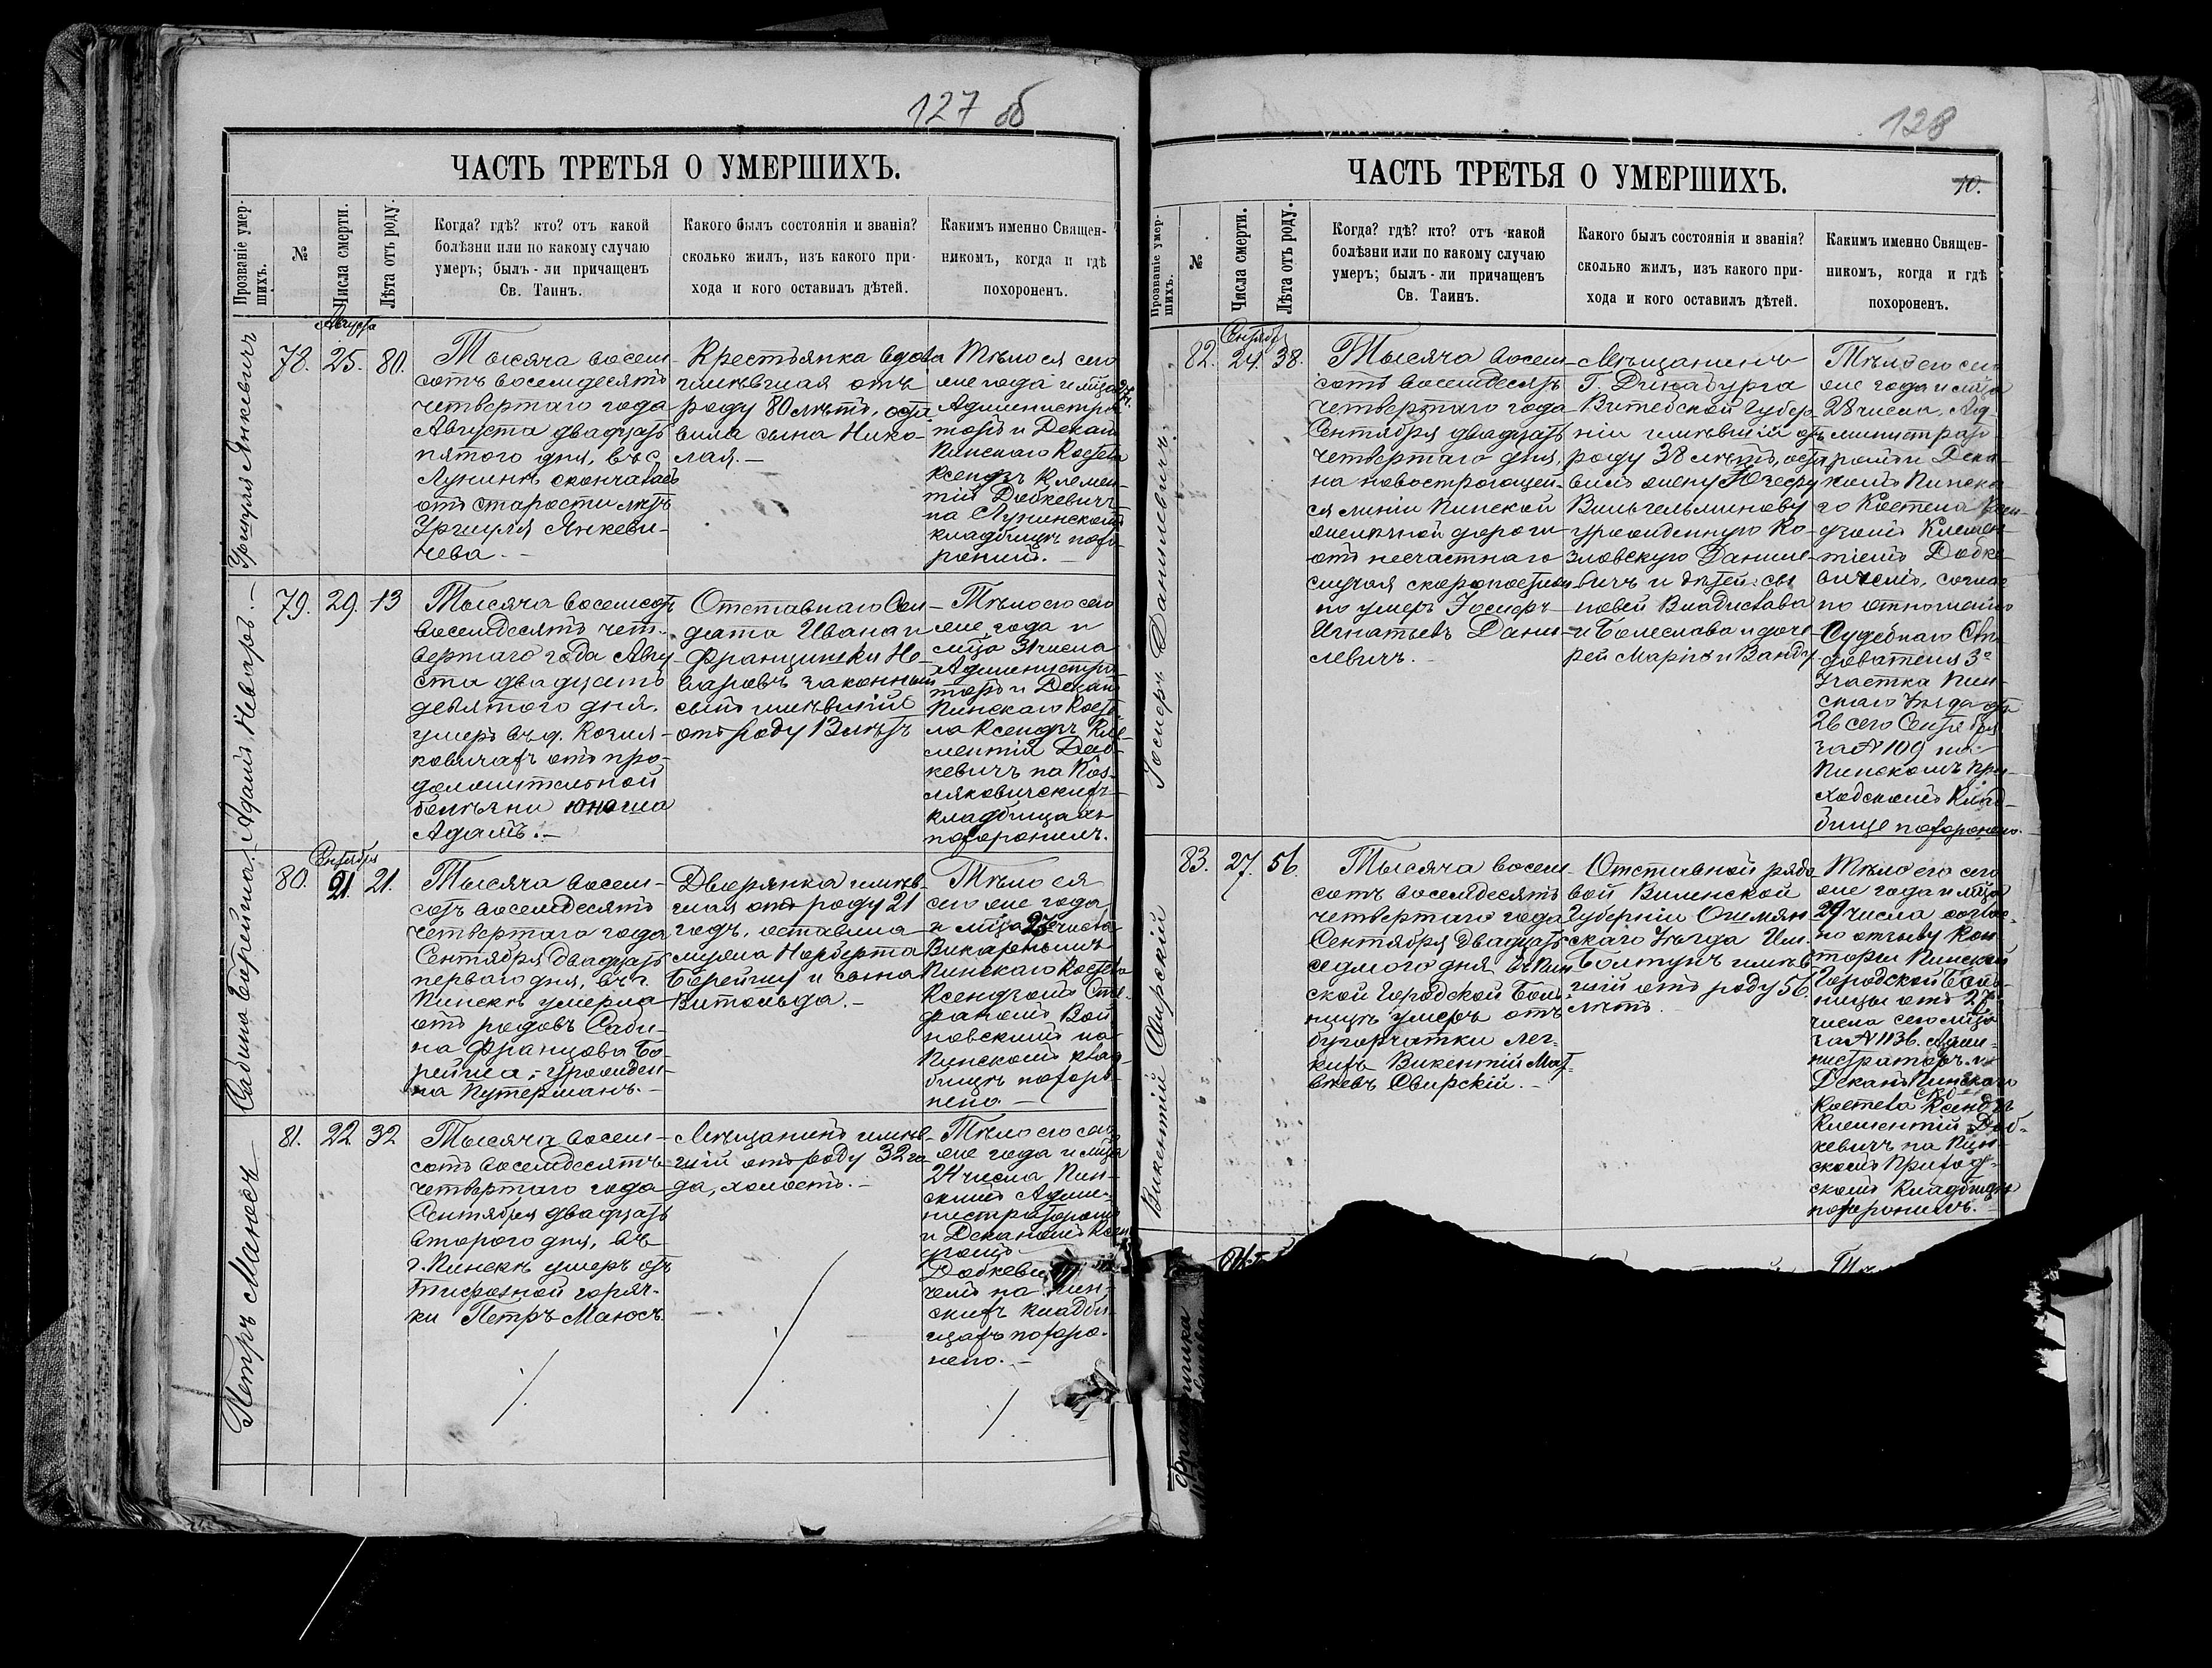 127 об
ЧАСТЬ ТРЕТЬЯ О УМЕРШИХЪ.
Прозваніе умер-
шихъ.
№
Числа смерти.
Лѣта отъ роду.
Когда? гдѣ? кто? отъ какой
болѣзни или по какому случаю
умеръ; былъ-ли причащенъ
Св. Таинъ.
Какого былъ состоянія и званія?
сколько жилъ, изъ какого при-
хода и кого оставилъ дѣтей.
Какимъ именно Священ-
никомъ, когда и гдѣ
похороненъ.
Уршуля Янкевичъ
78.
Августа
25.
80.
Тысяча восем-
сотъ восемдесятъ
четвертаго года
Августа двадцать
пятого дня, въ с.
Лунинѣ скончалась
отъ старости лѣтъ
Уршуля Янкеви-
чева.-
Крестьянка вдова
имѣвшая отъ
роду 80 лѣтъ, оста
вила сына Нико-
лая.-
Тѣло ея сего
же года и мѣсца 27 ч.
Администра
торъ и Декан
Пинскаго Костела
Ксендзъ Клемен-
тій Добкевичъ
на Лунинскомъ
кладбищѣ похо-
ронилъ.-
Адамъ Неваръ.-
79.
29.
13
Тысяча восемсотъ
восемдесятъ чет-
вертаго года Авгу-
ста двадцать
девятого дня.
умеръ въ д.
ковичахъ отъ про-
должительной
болѣзни юноша
Адамъ.-
Отставнаго Сол-
дата Ивана и
Францишки Не-
варовъ законный
сынъ имѣвшій
отъ роду 13 лѣтъ
Тѣло его сего
же года и
мѣсца 31 числа
Администра
торъ и Деканъ
Пинскаго Косте
ла Ксендзъ Кле-
ментій Доб-
кевичъ на
кладбищахъ
похоронилъ.
Сабина Борейша.
80.
Сентября
21.
21.
Тысяча восем-
сотъ восемдесятъ
четвертаго года
Сентября двадцать
перваго дня, въ г.
Пинскѣ умерла
отъ родовъ Саби-
на Францова Бо-
рейша, урожден-
на Путерманъ.-
Дворянка имѣв-
шая отъ роду 21
годъ, оставила
мужа Норберта
Борейшу и сына
Витольда.-
Тѣло ея
сего же года
и мѣсца 23 числа
Викарнымъ
Пинскаго Костела
Ксендзомъ Сте-
фаномъ Вой
новскимъ на
Пинскомъ клад-
бищѣ похоро-
нено.-
Петръ Маюсъ
81.
22
32
Тысяча восем-
сотъ восемдесятъ
четвертаго года
Сентября двадцать
второго дня, въ
г. Пинскѣ умеръ отъ
тифозной горяч-
ки Петръ Маюсъ.
Мѣщанинъ имѣв-
шій отъ роду 32 го
да, холостъ.-
Тѣло его сего
же года и мѣсца
24 числа Пин-
скимъ Адми-
нистраторомъ
и Деканомъ Ксен
дзомъ
Добкеви
чемъ на Пин-
скихъ кладби-
щахъ похоро-
нено.-
128
ЧАСТЬ ТРЕТЬЯ О УМЕРШИХЪ.
10.
Прозваніе умер-
шихъ.
№
Числа смерти.
Лѣта отъ роду.
Когда? гдѣ? кто? отъ какой
болѣзни или по какому случаю
умеръ; былъ-ли причащенъ
Св. Таинъ.
Какого былъ состоянія и званія?
сколько жилъ, изъ какого при-
хода и кого оставилъ дѣтей.
Какимъ именно Священ-
никомъ, когда и гдѣ
похороненъ.
Іосифъ Данилевичъ.
82.
Сентября
24.
38.
Тысяча восем-
сотъ восемдесятъ
четвертаго года
Сентября двадцать
четвертаго дня,
на новострогощей-
ся линіи Пинской
желѣзной дороги
отъ несчастнаго
случая скоропостиж
но умеръ Іосифъ
Игнатьевъ Дани-
левичъ.-
Мѣщанинъ
Г. Динабурга
Витебской Губер-
ніи имѣвшій отъ
роду 38 лѣтъ, оста
вилъ жену Юзефу
Вильгельминову
урожденную Ко-
зловскую Даниле-
вичъ и дѣтей: сы
новей Владислава
и Болеслава и доче-
рей Марію и Ванду
Тѣло его сего
же года и мѣсца
28 числа, Ад-
министрато-
ромъ и Дека
номъ Пинска
го Костела Ксен-
дзомъ Клемен-
тіемъ Добке-
вичемъ, соглас
но отношенію
Судебнаго Слѣ-
дователя 3го
участка Пин-
скаго Уѣзда отъ
26 сего Сентября
за № 109 на
Пинскомъ при-
ходскомъ клад-
бище похоронено.
Викентій Свирскій
83.
27.
56.
Тысяча восем-
сотъ восемдесятъ
четвертаго года
Сентября двадцать
седмого дня въ Пин
ской Городской Боль
ницѣ умеръ отъ
бугорчатки лег-
кихъ Викентій Мат-
вѣевъ Свирскій.-
Отставной рядо
вой Виленской
Губерніи Ошмян-
скаго Уѣзда Им.
Болтупъ имѣв
шій отъ роду 56
лѣтъ.
Тѣло его сего
же года и мѣсца
29 числа соглас-
но отзыву Кон
торы Пинской
Городской Боль-
ницы отъ 27
числа сего мѣсца
за № 1136. Адми-
нистраторъ и
Деканъ Пинскаго
Костела Ксендзъ
Клементій Доб-
кевичъ на Пин-
скомъ приход-
скомъ кладбищѣ
похоронилъ.-